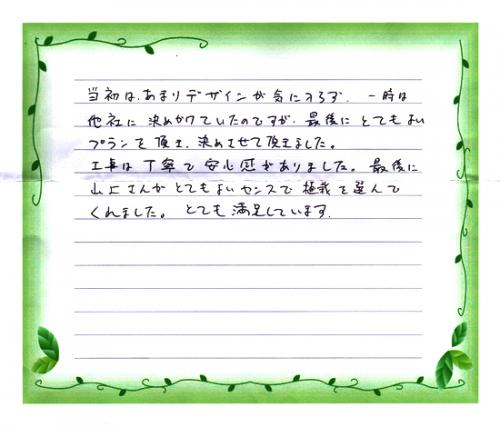 当初は、あまりデザインが気に入らず、一時は
他社に決めかけていたのですが、最後にとてもよい
プランを頂き、決めさせて頂きました。
工事は丁寧で安心感がありました。最後に
山上さんがとてもよいセンスで植栽を選んで
くれました。とても満足しています。